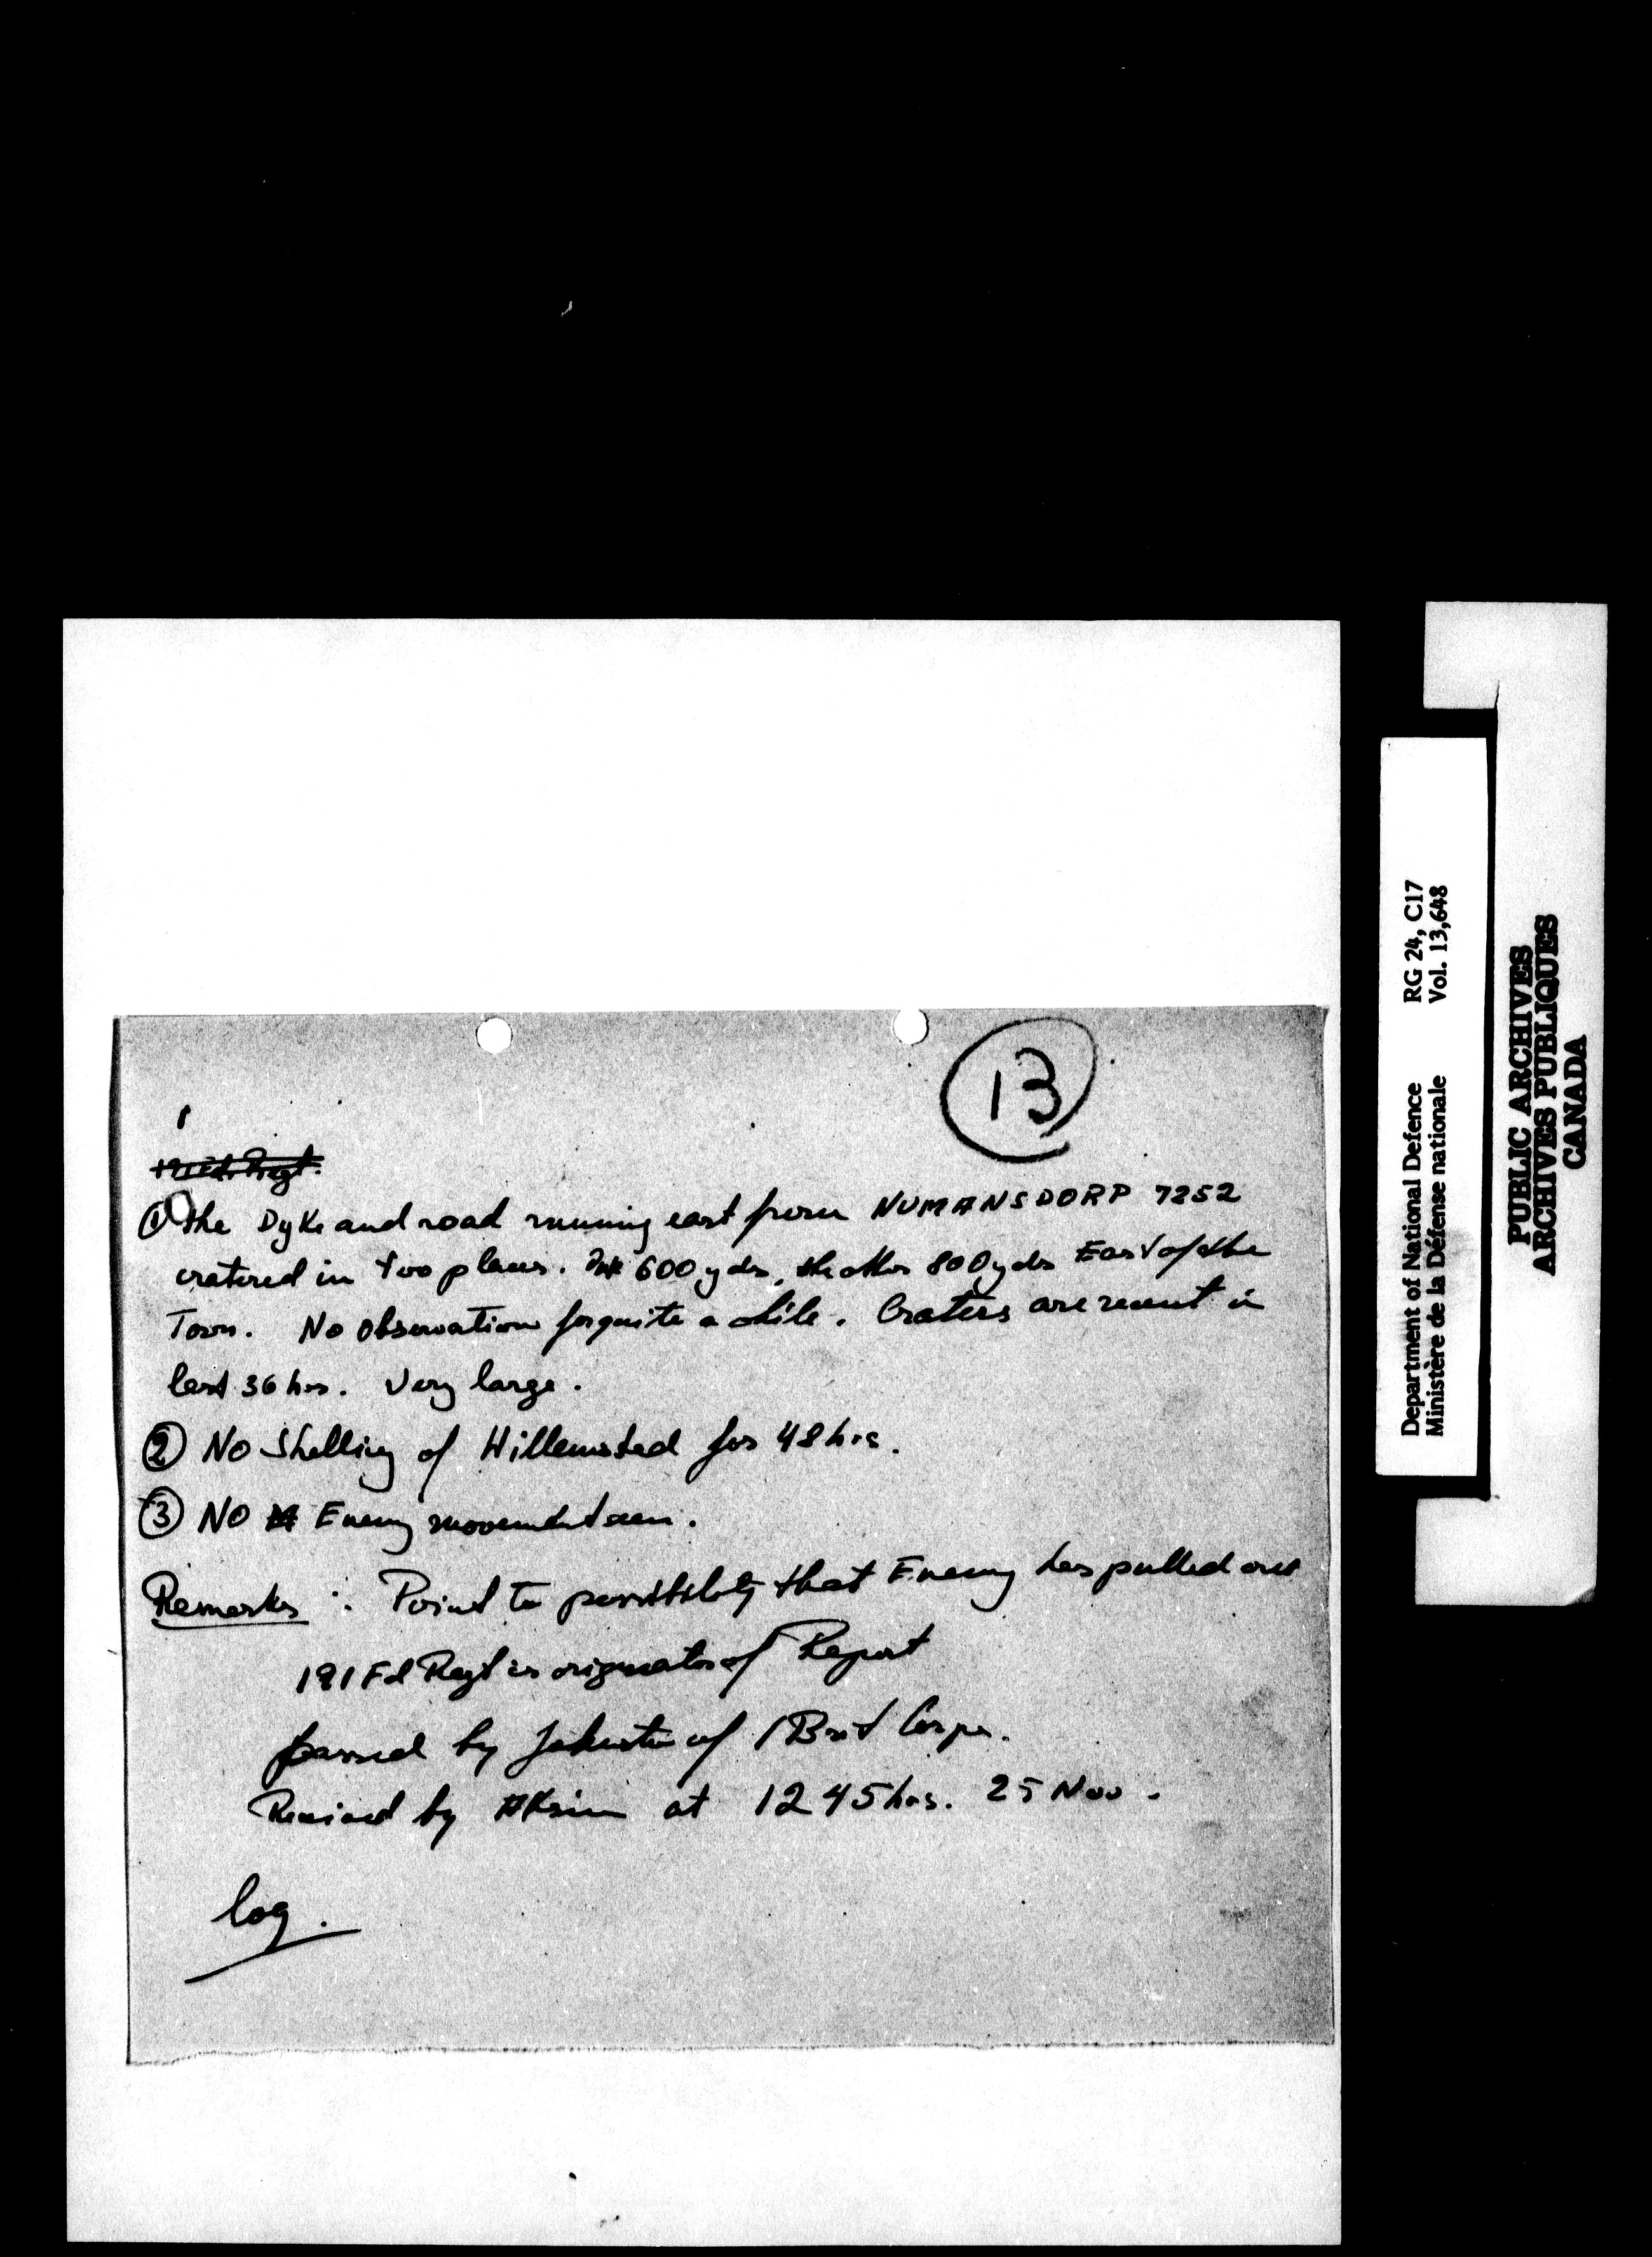 13
191 Fd. Regt.
① The Dyke and road running east from NUMANSDORP 7252
cratered in two places. 600 yds, the other 800 yds East of the
Town. No observation for quite a while. Craters are recent in
last 36 hrs. Very large.
② NO Shelling of Willemstad for 48 hrs.
③ NO Enemy movement seen.
Remarks : Point to possibility that Enemy has pulled out
191 Fd Regt is originator of Report
passed by Johnston of 1 Brit Corps.
Received by at 1245 hrs. 25 Nov.
log.
Department of National Defence RG 24, C17
Ministère de la Défense nationale Vol. 13,648
PUBLIC ARCHIVES
ARCHIVES PUBLIQUES
CANADA